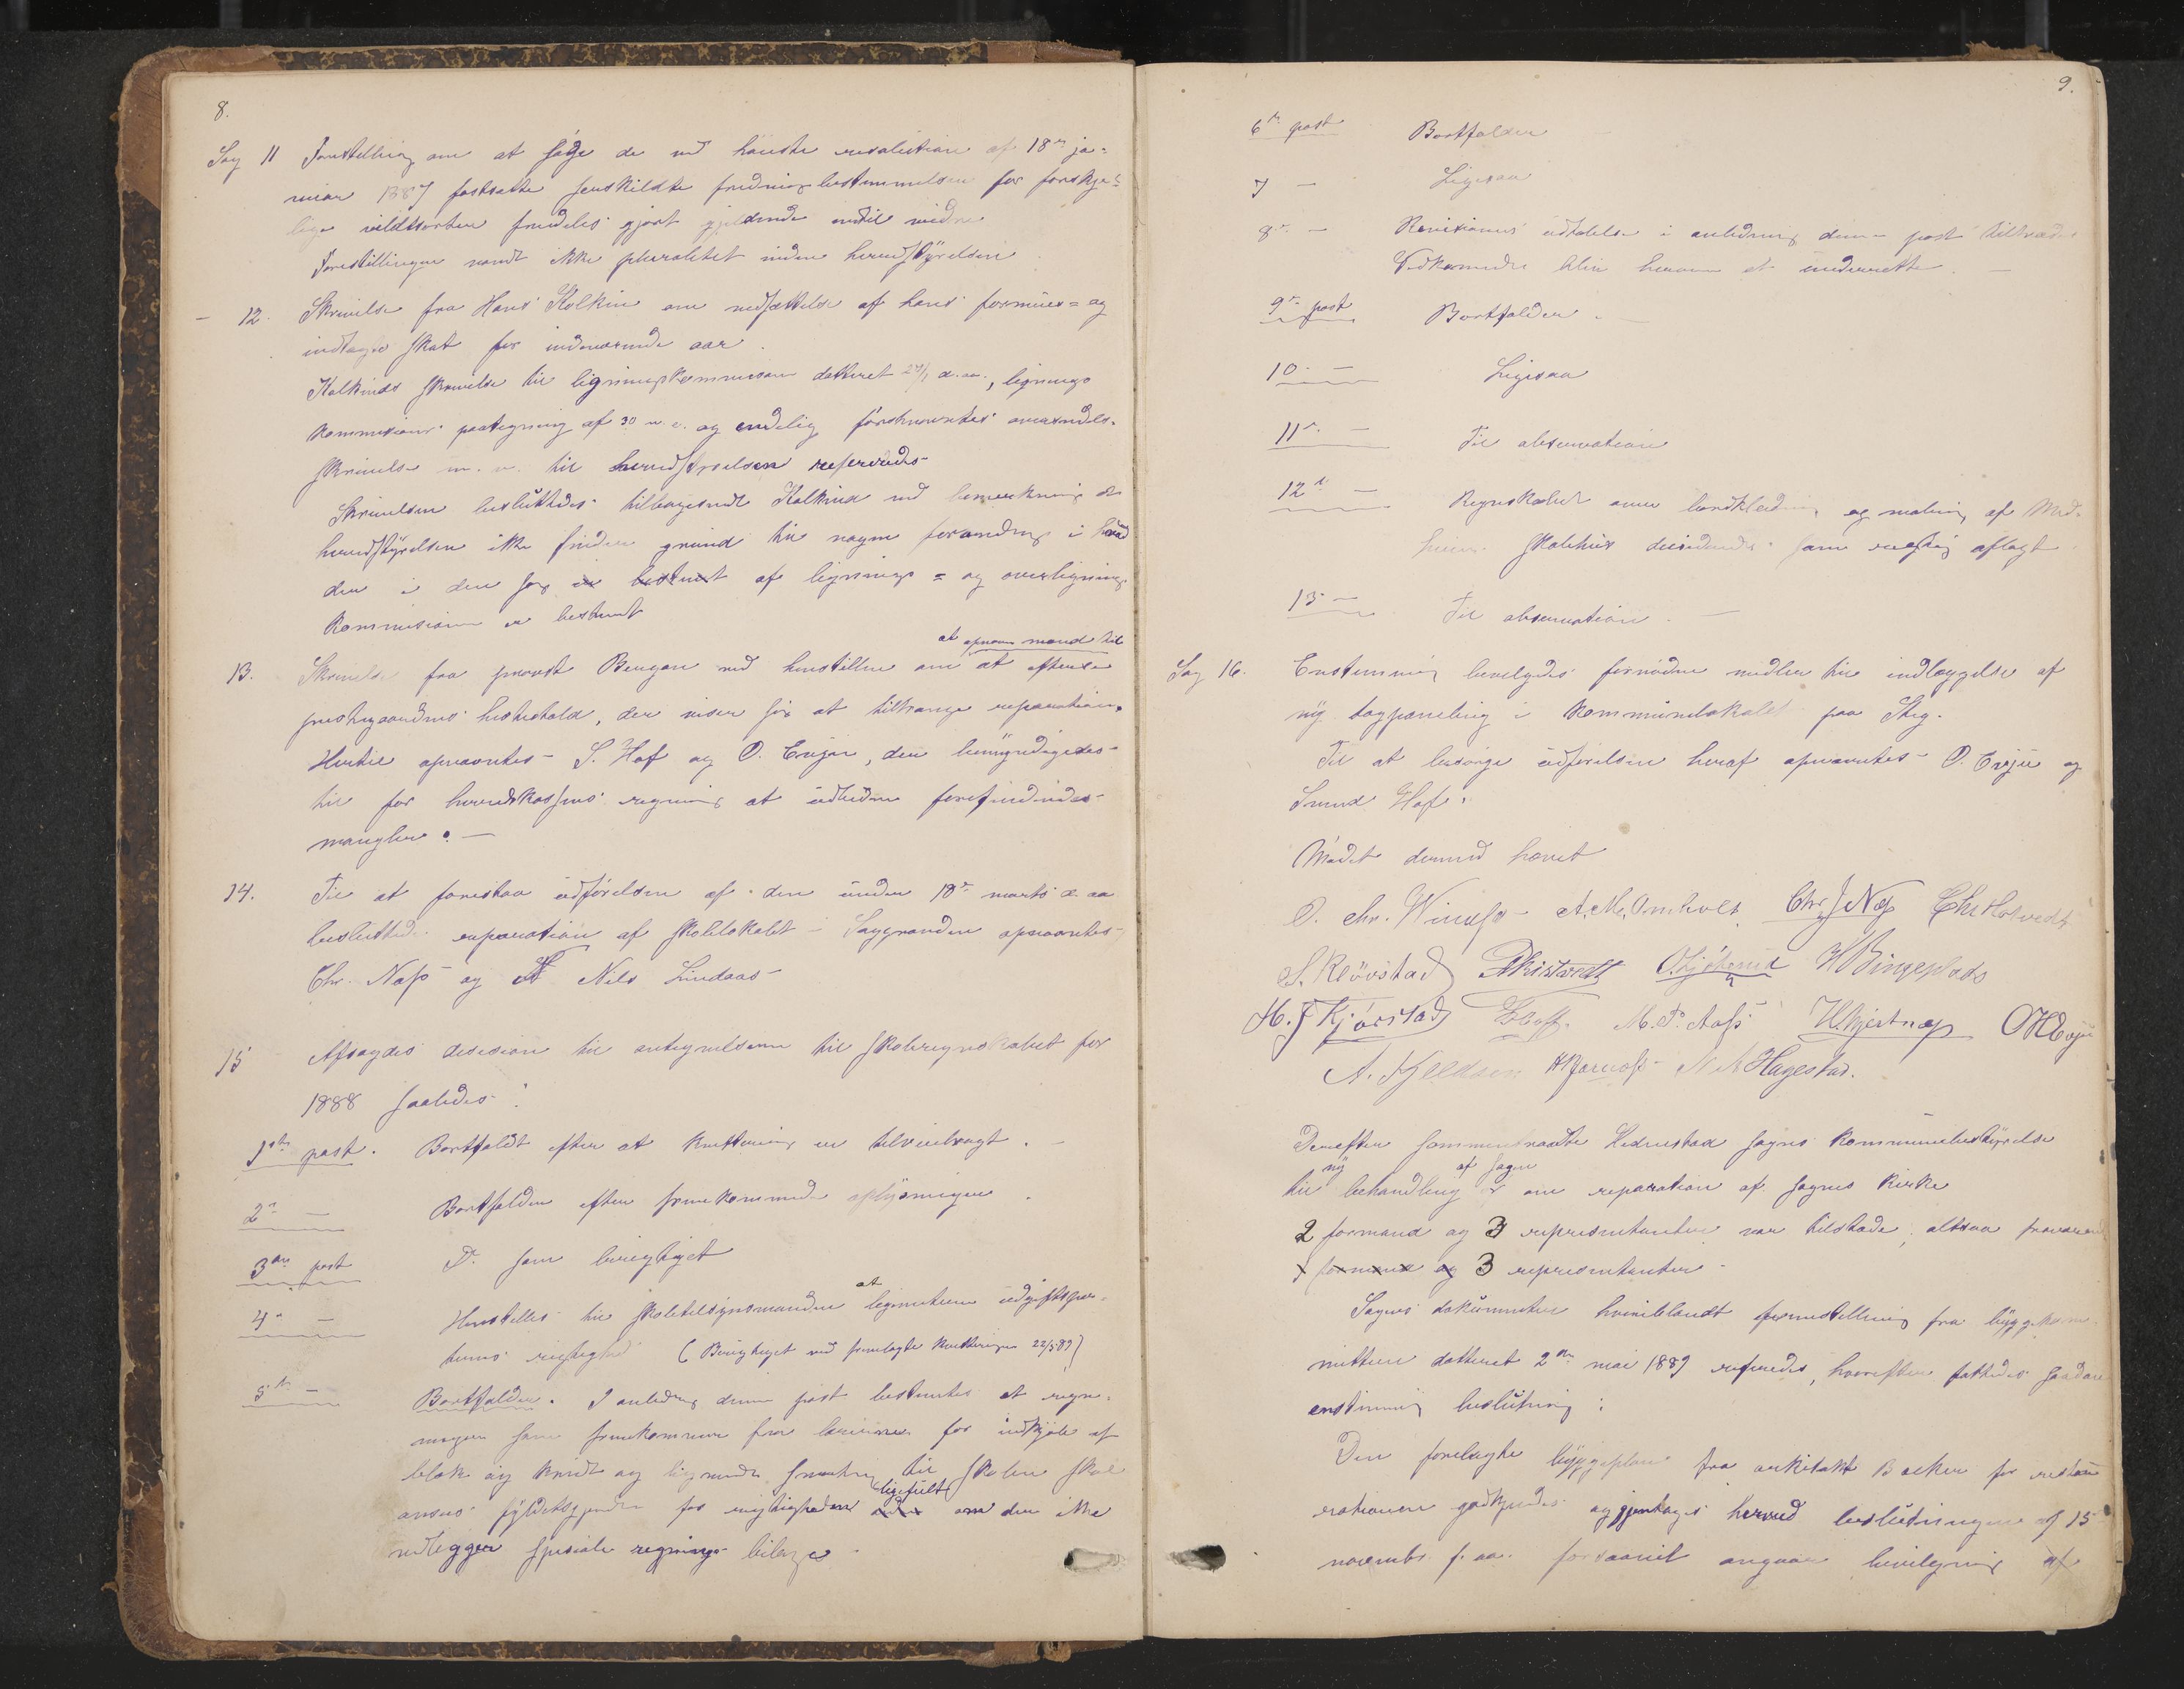 8.
Sag 11 Forestilling om at søge de ved høieste resolution af 18de ja-
nuar 1887 fastsatte serskildte fredningsbestemmelser for forskje-
lige vildtsorter fremdeles gjort gjeldende indtil videre
Forestillingen vandt ikke pluralitet inden herredstyrelsen
— 12. Skrivelse fra Hans Kolkin om nedsættelse af hans formues= og
indtægts skat for indeværende aar.
Kolkinds skrivelse til ligningskommissionen datteret d. aa., lignings
kommissions paategning af 30 og endelig oversendels-
skrivelse til herredstyrelsen refereredes
Skrivelsen besluttedes tilbagesendt Kolkind med bemerkning at
herredstyrelsen ikke finder grund til nogen forandring i hvad
der i den sag er bestemt af lignings= og overligning
kommissionen er bestemt
at opnevne mænd til
13. Skrivelse fra provst Bengson med henstillen om at efterse
prestegaardens husbehold, der viser sig at tiltrænge reparation.
Hertil opnevntes S. Hof og O. Enju, der bemyndigedes
til for herredskassens regning at udbedre forefindendes
mangler. —
14. Til at forestaa udførelsen af den under 18de marts d. aa
besluttede reparation af skolelokalet i Saggranden opnevntes
Chr. Næss og Nils Lindaas
15 Afsagdes desision til antegnelserne til skoleregnskabet for
1888 saaledes:
1ste post. Bortfaldt efter at kvittering er tilveiebragt. —
2n — Bortfalder efter fremkommende oplysninger.
3die post D. som berigtiget
4n — Henstilles til skoletilsynsmanden at legimitere udgiftspos-
tenes rigtighed (Berigtiget ved fremlagte kvitteringer 22/5 89)
5te — Bortfalder. I anledning denne post bestemtes at regn-
ningen som fremkommer fra lærerne for indkjøb af
blæk og kridt og lignende smaating til skolen skal
ansees fyldestgjørende for rigtigheden ligefuldt om der ikke
vedlegges spesiale regnings bilage
9.
6te post Bortfalder
7 — Ligesaa
8de — Revisionens udtalelse i anledning denne post tiltrædes
Vedkommende blir herom at underrette. —
9de post Bortfalder. —
10. — Ligesaa
11te — Til observation
12te — Regnskabet over bordkledning og maling af Med-
heim skolehus desideredes som rigtig aflagt
13 — Til observation. —
Sag 16. Enstemmig bevilgedes fornødne midler til indlæggelse af
ny tagpaneling i kommunelokalet paa Steg.
Til at besørge udførelsen heraf opnævntes O. Enju og
Svend Hof.
Mødet dermed hævet
O. Chr. Winess A. M. Omholt Chr J Næs Chr Holtvedt
S. Kløvstad O. Kjøland H Bingeplads
H. J Kjørstad S Hoff. M. P. Aass H. Kjestrup O H Enju
A. Kjeldsen H Bjørnass N A Hagestad.
Derefter sammentraadte Hedenstad sogns kommunebestyrelse
ny af sagen
til behandling om reparation af sognets kirke
2 formænd og 3 representanter var tilstæde, altsaa fraværende
1 formand og 3 representanter
Sagens dokumenter hvoriblandt foranstillning fra byggekom-
mitteen datteret 2den mai 1889 refereredes, hvorefter fattedes saadan
enstemmig beslutning:
Den forelagte byggeplan fra arkitekt Backer for restau
rationen godkjendes og gjentages herved beslutningen af 15
novembr f. aa. forsaavidt angaar bevilgning af